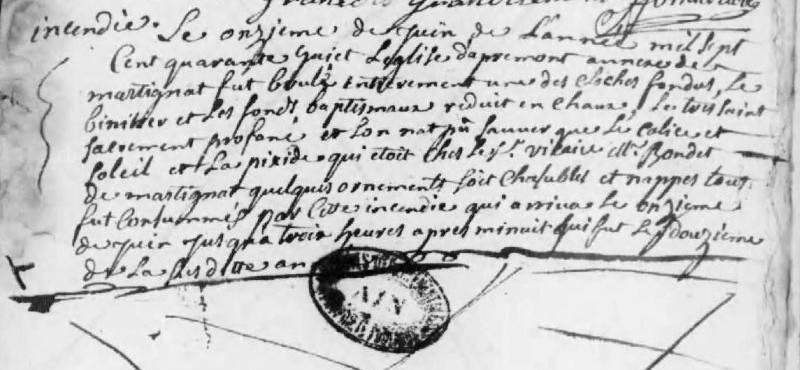 incendie. Le onzieme de juin de L'année mil sept
Cent quarante huiet Leglise dapremont annexe de
martignat fut brulé Entierement une des cloches fondus, Le
binitier et Les fonds baptismaux reduit en Chaux, Le tres saint
sacrement profané et Lon nat pû sauver que Le Calice et
soleil et La pixide qui etoit Ches Le Sr. vicaire Mr. Bondet
de martignat quelquis ornements soit Chasubles et nappes tous
fut Consummés par Cette incendie qui arriva Le onzieme
de juin jusqua trois heures apres minuit qui fut Le douzieme
de La susditte an
AIN